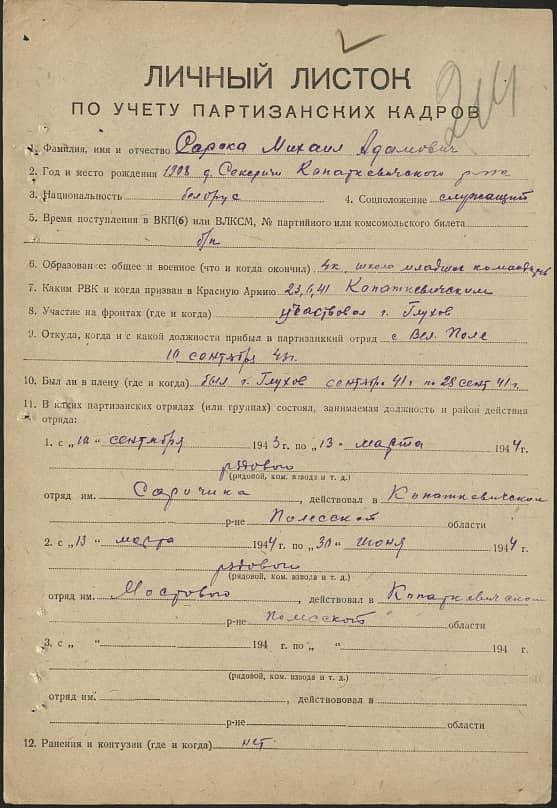 214
ЛИЧНЫЙ ЛИСТОК
ПО УЧЕТУ ПАРТИЗАНСКИХ КАДРОВ
1. Фамилия, имя и отчество Михаил Адамович
2. Год и место рождения 1908 д. Секеричи Копаткевичского р-на
3. Национальность белорус 4. Соцположение служащий
5. Время поступления в ВКП(б) или ВЛКСМ, № партийного или комсомольского билета
б/п
6. Образование: общее и военное (что и когда окончил) 4 к. школа младших командиров
7. Каким РВК и когда призван в Красную Армию 23,6,41 Копаткевичским
8. Участие на фронтах (где и когда) участвовал г. Глухов
9. Откуда, когда и с какой должности прибыл в партизанкий отряд с Вел. Поле
10 сентября 43г.
10. Был ли в плену (где и когда) был г. Глухов сентябр 41 г по 28 сент 41 г.
11. В каких партизанских отрядах (или группах) состоял, занимаемая должность и район действия
отряда:
1. с „10“ сентября 1943 г. по „13“ марта 1944 г.
рядового
(рядовой, ком. взвода и т. д.)
отряд им. , действовал в Копаткевичском
р-не Полесской области
2. с „13“ марта 1944 г. по „30“ июня 1944 г.
рядового
(рядовой, ком. взвода и т. д.)
отряд им. Мостового , действовал в Копаткевичском
р-не Полесской области
3. с „ “ 194 г. по „ “ 194 г.
(рядовой, ком. взвода и т. д.)
отряд им. , действововал в
р-не области
12. Ранения и контузии (где и когда) нет